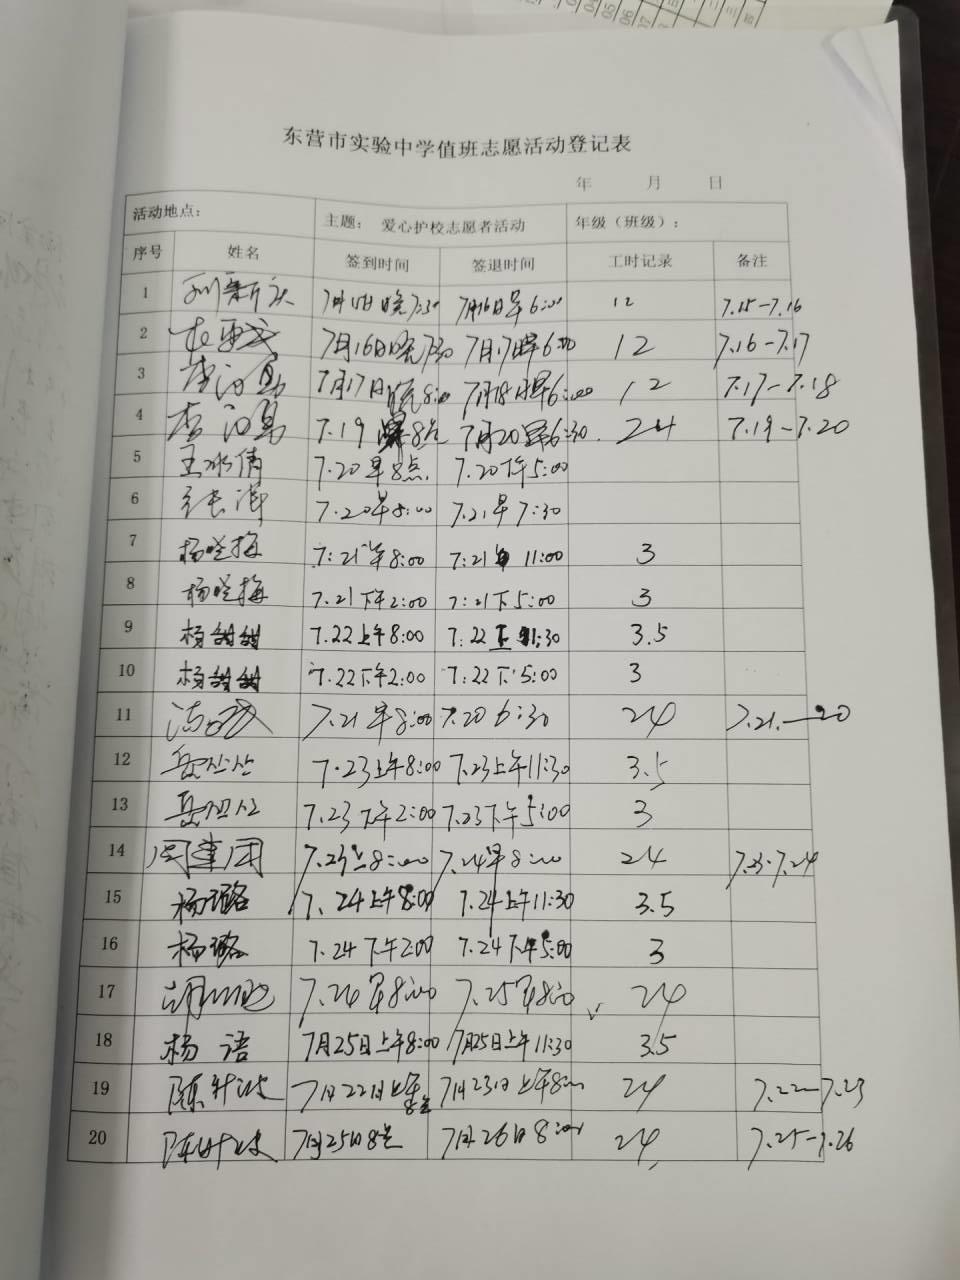 东营市实验中学值班志愿活动登记表
年 月 日
活动地点: 主题: 爱心护校志愿者活动 年级（班级）:
序号 姓名 签到时间 签退时间 工时记录 备注
1 刘新 晚7:30 7月16日早6:00 12 7.15-7.16
2 7月16日晚7:30 7月17早6:00 12 7.16-7.17
3 7月17日晚8:00 7月18日早6:00 12 7.17-7.18
4 李 7.19 8点 7月20早6:30 24 7.19-7.20
5 王冰倩 7.20早8点 7.20下午5:00
6 张涛 7.20早8:00 7.21早7:30
7 杨晓梅 7:21上午8:00 7:21 11:00 3
8 杨晓梅 7.21下午2:00 7:21下5:00 3
9 杨甜甜 7.22上午8:00 7:22上11:30 3.5
10 杨甜甜 7.22下午2:00 7:22下5:00 3
11 7.21早8:00 7.20 6:30 24 7.21.—20
12 岳 7.23上午8:00 7.23上午11:30 3.5
13 岳 7.23下午2:00 7.23下午5:00 3
14 周建国 7.23上8:00 7.24早8:00 24 7.23-7.24
15 杨璐 7.24上午8:00 7.24上午11:30 3.5
16 杨璐 7.24下午2:00 7.24下午5:00 3
17 胡 7.24早8:00 7.25早8:00 24
18 杨语 7月25日上午8:00 7月25日上午11:30 3.5
19 陈升波 7月22日上午8点 7月23日上午8:00 24 7.22-7.23
20 陈升波 7月25日8点 7月26日8:00 24 7.25-7.26